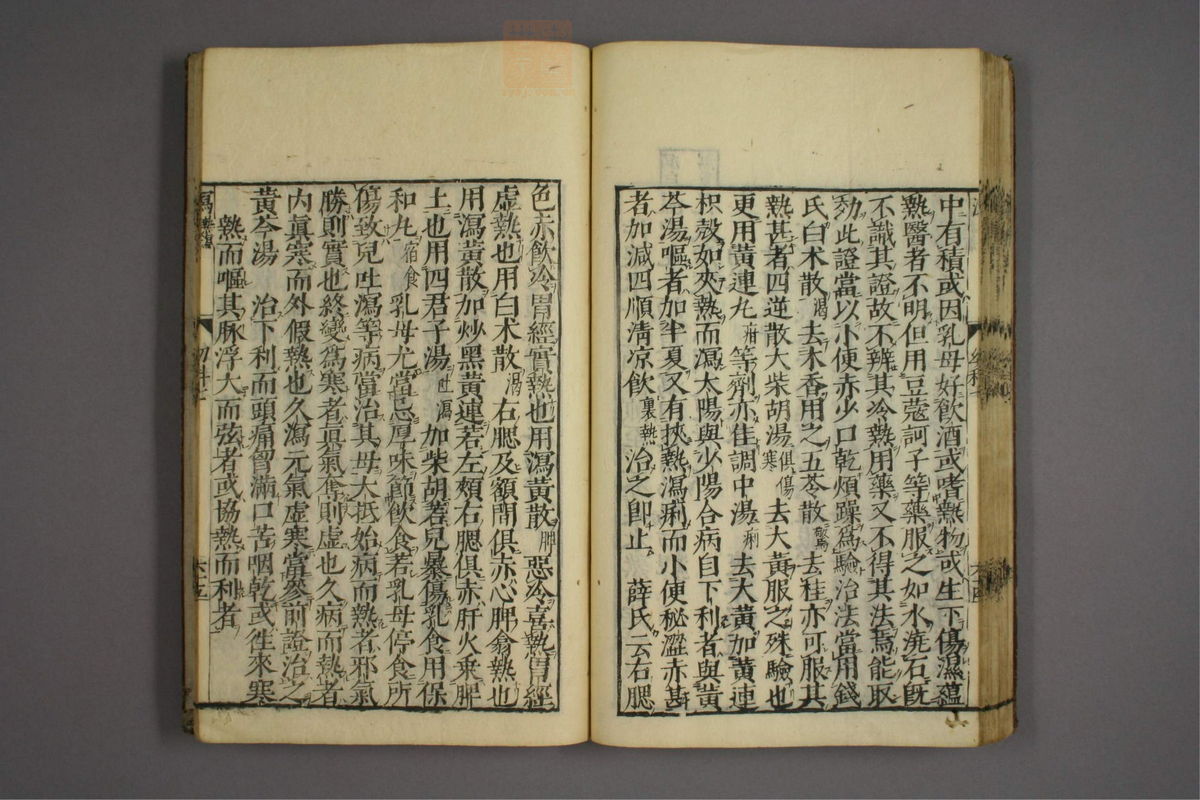 中有積或因乳母好飲酒或嗜熱物或生下傷濕蘊
熱醫者不明但用豆蔻訶子等藥服之如水澆石既
不識其證故不辨其冷熱用藥又不得其法焉能取
効此證當以小便赤少口乾煩躁爲驗治法當用錢
氏白术散渴去木香用之五苓散驚去桂亦可服其
熱甚者四逆散大柴胡湯俱傷寒去大黃服之殊驗也
更用黃連丸疳等劑亦佳調中湯痢去大黃加黃連
枳殼如夾熱而瀉太陽與少陽合病自下利者與黃
芩湯嘔者加半夏又有挾熱瀉痢而小便秘澀赤甚
者加減四順清凉飲裏熱治之即止 薛氏云右腮
色赤飲冷胃經實熱也用瀉黃散脾惡冷喜熱胃經
虛熱也用白术散渴右腮及額間俱赤心脾翕熱也
用瀉黃散加炒黑黃連若左頰右腮俱赤肝火乗脾
土也用四君子湯吐瀉加柴胡若兒暴傷乳食用保
和丸宿食乳母尤當忌厚味節飲食若乳母停食所
傷致兒吐瀉等病當治其母大抵始病而熱者邪氣
勝則實也終變爲寒者眞氣奪則虛也久病而熱者
内眞寒而外假熱也久瀉元氣虛寒當參前證治之
黃芩湯 治下利而頭痛胷滿口苦咽乾或徃來寒
熱而嘔其脉浮大而弦者或協熱而利者
幼科
六十五